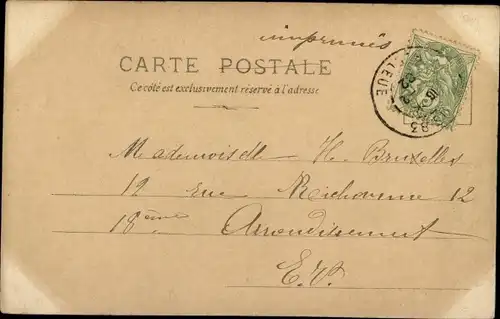 imprimés
CARTE POSTALE
Ce côté est exclusivement réservé à l'adresse
Mademoiselle H. Bruxelles
12 rue 12
18ème Arrondissement
E.V.